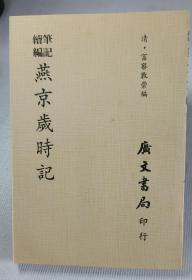 清·富察敦崇編
筆記續編
燕京歲時記
廣文書局
印行